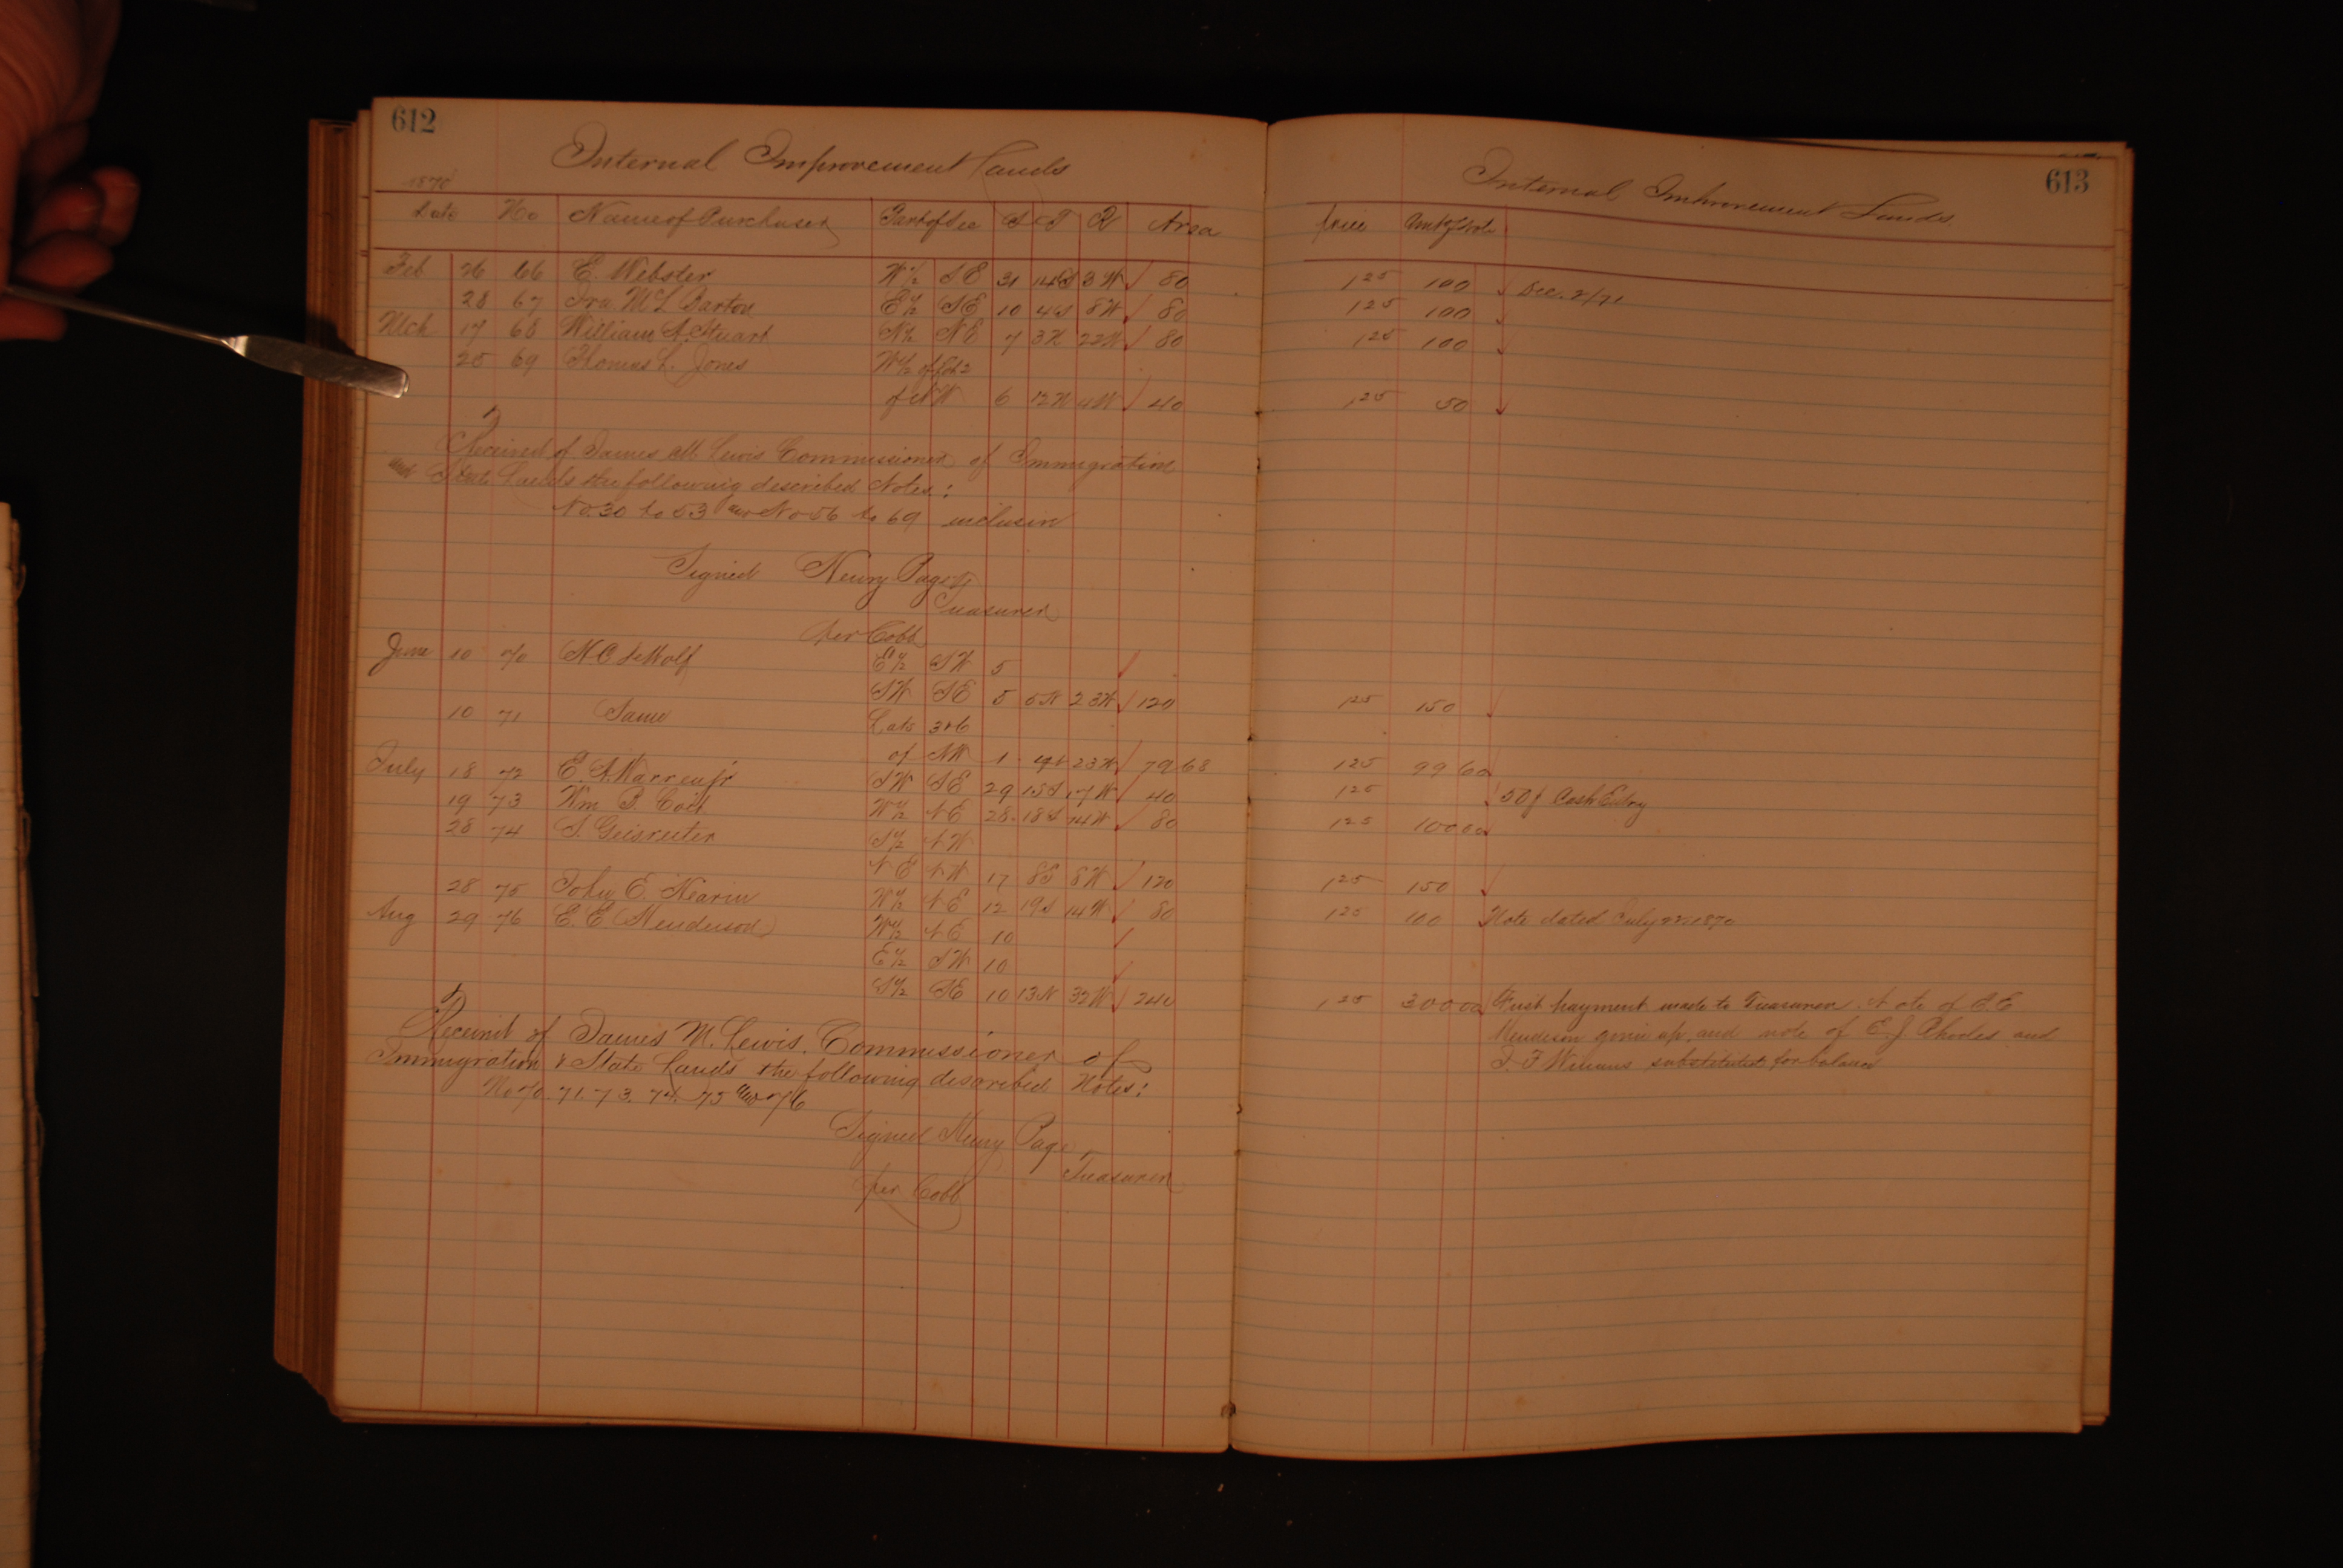 612
Internal Improvement Lands
1870
Date No Name of Purchaser Part of Sec S T R Area
Feb 26 66 E. Webster W½ SE 31 14S 3W 80
28 67 Ira McL Barton E½ SE 10 4S 8W 80
Mch 17 68 William A. Stuart N½ NE 7 3N 22W 80
25 69 Thomas L. Jones W½ of Lot 2
of NW 6 12N 4W 40
Received of James M. Lewis Commissioner of Immigration
and State Lands the following described Notes:
No. 30 to 53 and No 56 to 69 inclusive
Signed Henry Page
Treasurer
per Cobb
June 10 70 N C DeWolf E½ SW 5
SW SE 5 5N 23W 120
10 71 Same Lots 3&6
of NW 1 23W 79 68
July 18 72 E. A. Warren Jr SW SE 29 15S 17W 40
19 73 Wm B. W½ NE 28 18S 14W 80
28 74 S. Geisreiter S½ NW
NE NW 17 8S 8W 120
28 75 John E. W½ NE 12 19S 14W 80
Aug 29 76 E. E. Henderson W½ NE 10
E½ SW 10
S½ SE 10 13N 32W 240
Received of James M. Lewis. Commissioner of
Immigration & State Lands the following discribed Notes:
No 70. 71. 73. 74. 75 and 76
Signed Henry Page
Treasurer
per Cobb
613
Internal Improvement Lands
price Amt of Note
125 100 Dec. 2/71
125 100
125 100
125 50
125 150
125 99 60
125 50 Cash Entry
125 100 00
125 150
125 100 Note dated July 22 1870
125 300 00 First payment made to Treasurer. Note of E E
Henderson given up, and note of E. J. Rhodes and
substituted for balance